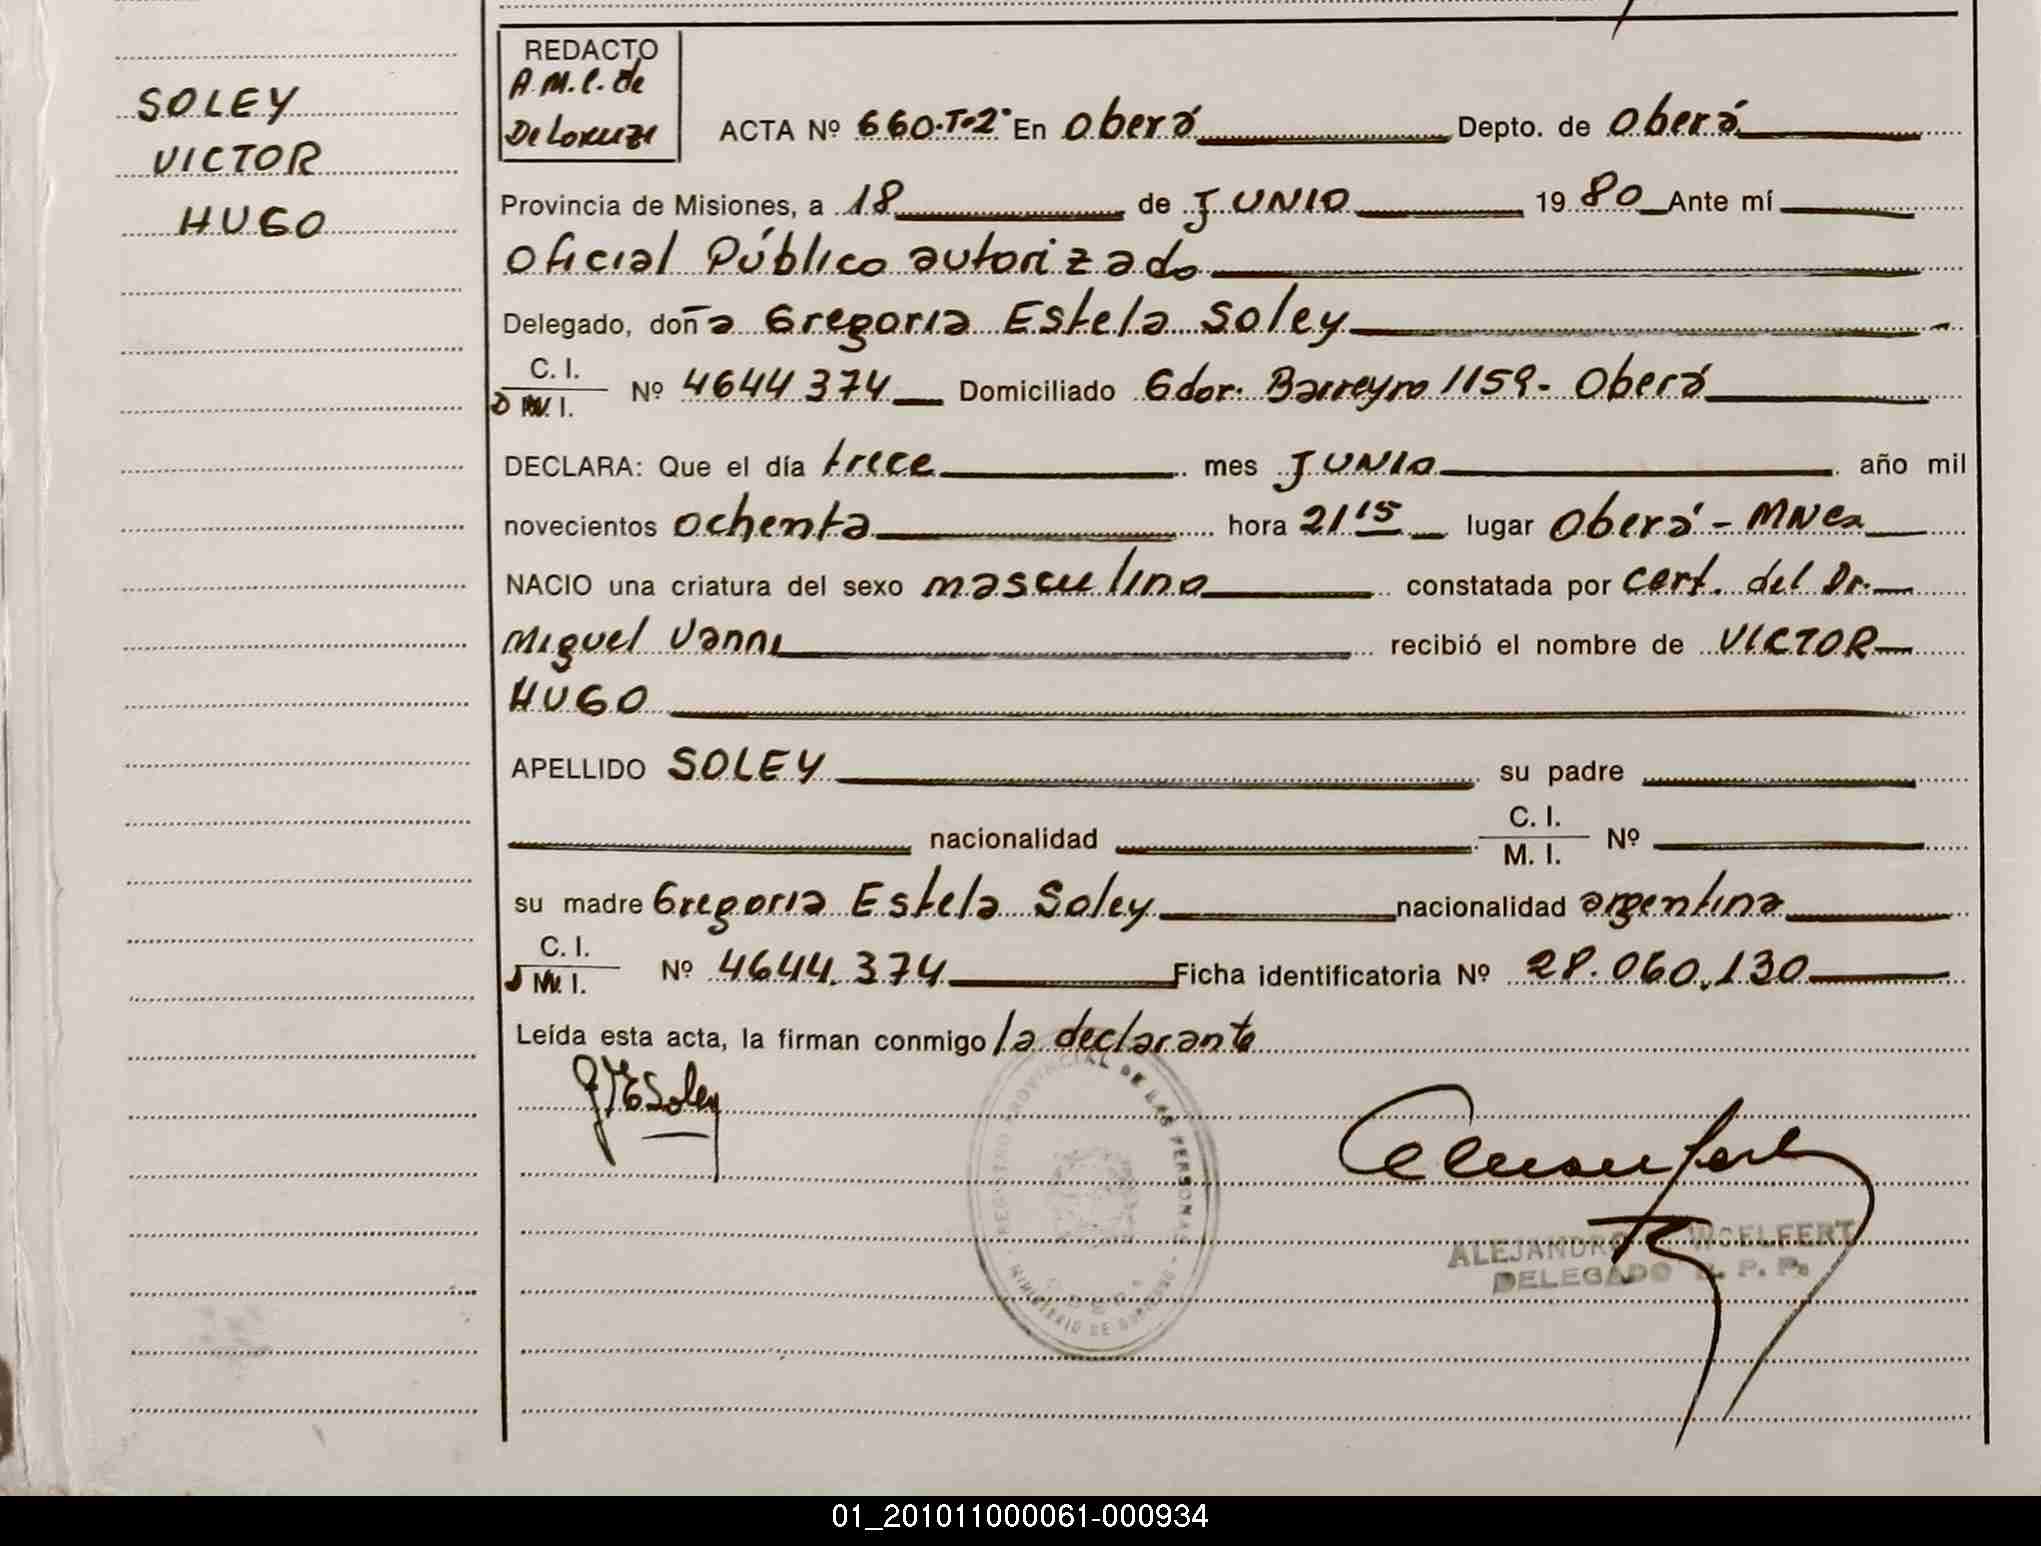 SOLEY
VICTOR
HUGO
REDACTO
A.M.C. de
De Lorenze
ACTA Nº 660.T-2º En Oberá Depto. de Oberá
Provincia de Misiones, a 18 de JUNIO 1980 Ante mí
Oficial Público autorizado
Delegado, doña Gregoria Estela Soley
C. I.
D M. I. Nº 4644374 Domiciliado Gdor. Barreyro 1159 - Oberá
DECLARA: Que el día trece mes JUNIO año mil
novecientos ochenta hora 21 15 lugar Oberá - MNES
NACIO una criatura del sexo masculino constatada por cert. del Dr.
Miguel Vanni recibió el nombre de VICTOR
HUGO
APELLIDO SOLEY su padre
nacionalidad C. I. M. I. Nº
su madre Gregoria Estela Soley nacionalidad argentina
C. I.
M. I. Nº 4644.374 Ficha identificatoria Nº 28.060.130
Leída esta acta, la firman conmigo la declarante
Soley
REGISTRO PROVINCIAL DE LAS PERSONAS
MINISTERIO DE GOBIERNO
ALEJANDRO WOELFERT
DELEGADO R. P. P.
01_201011000061-000934